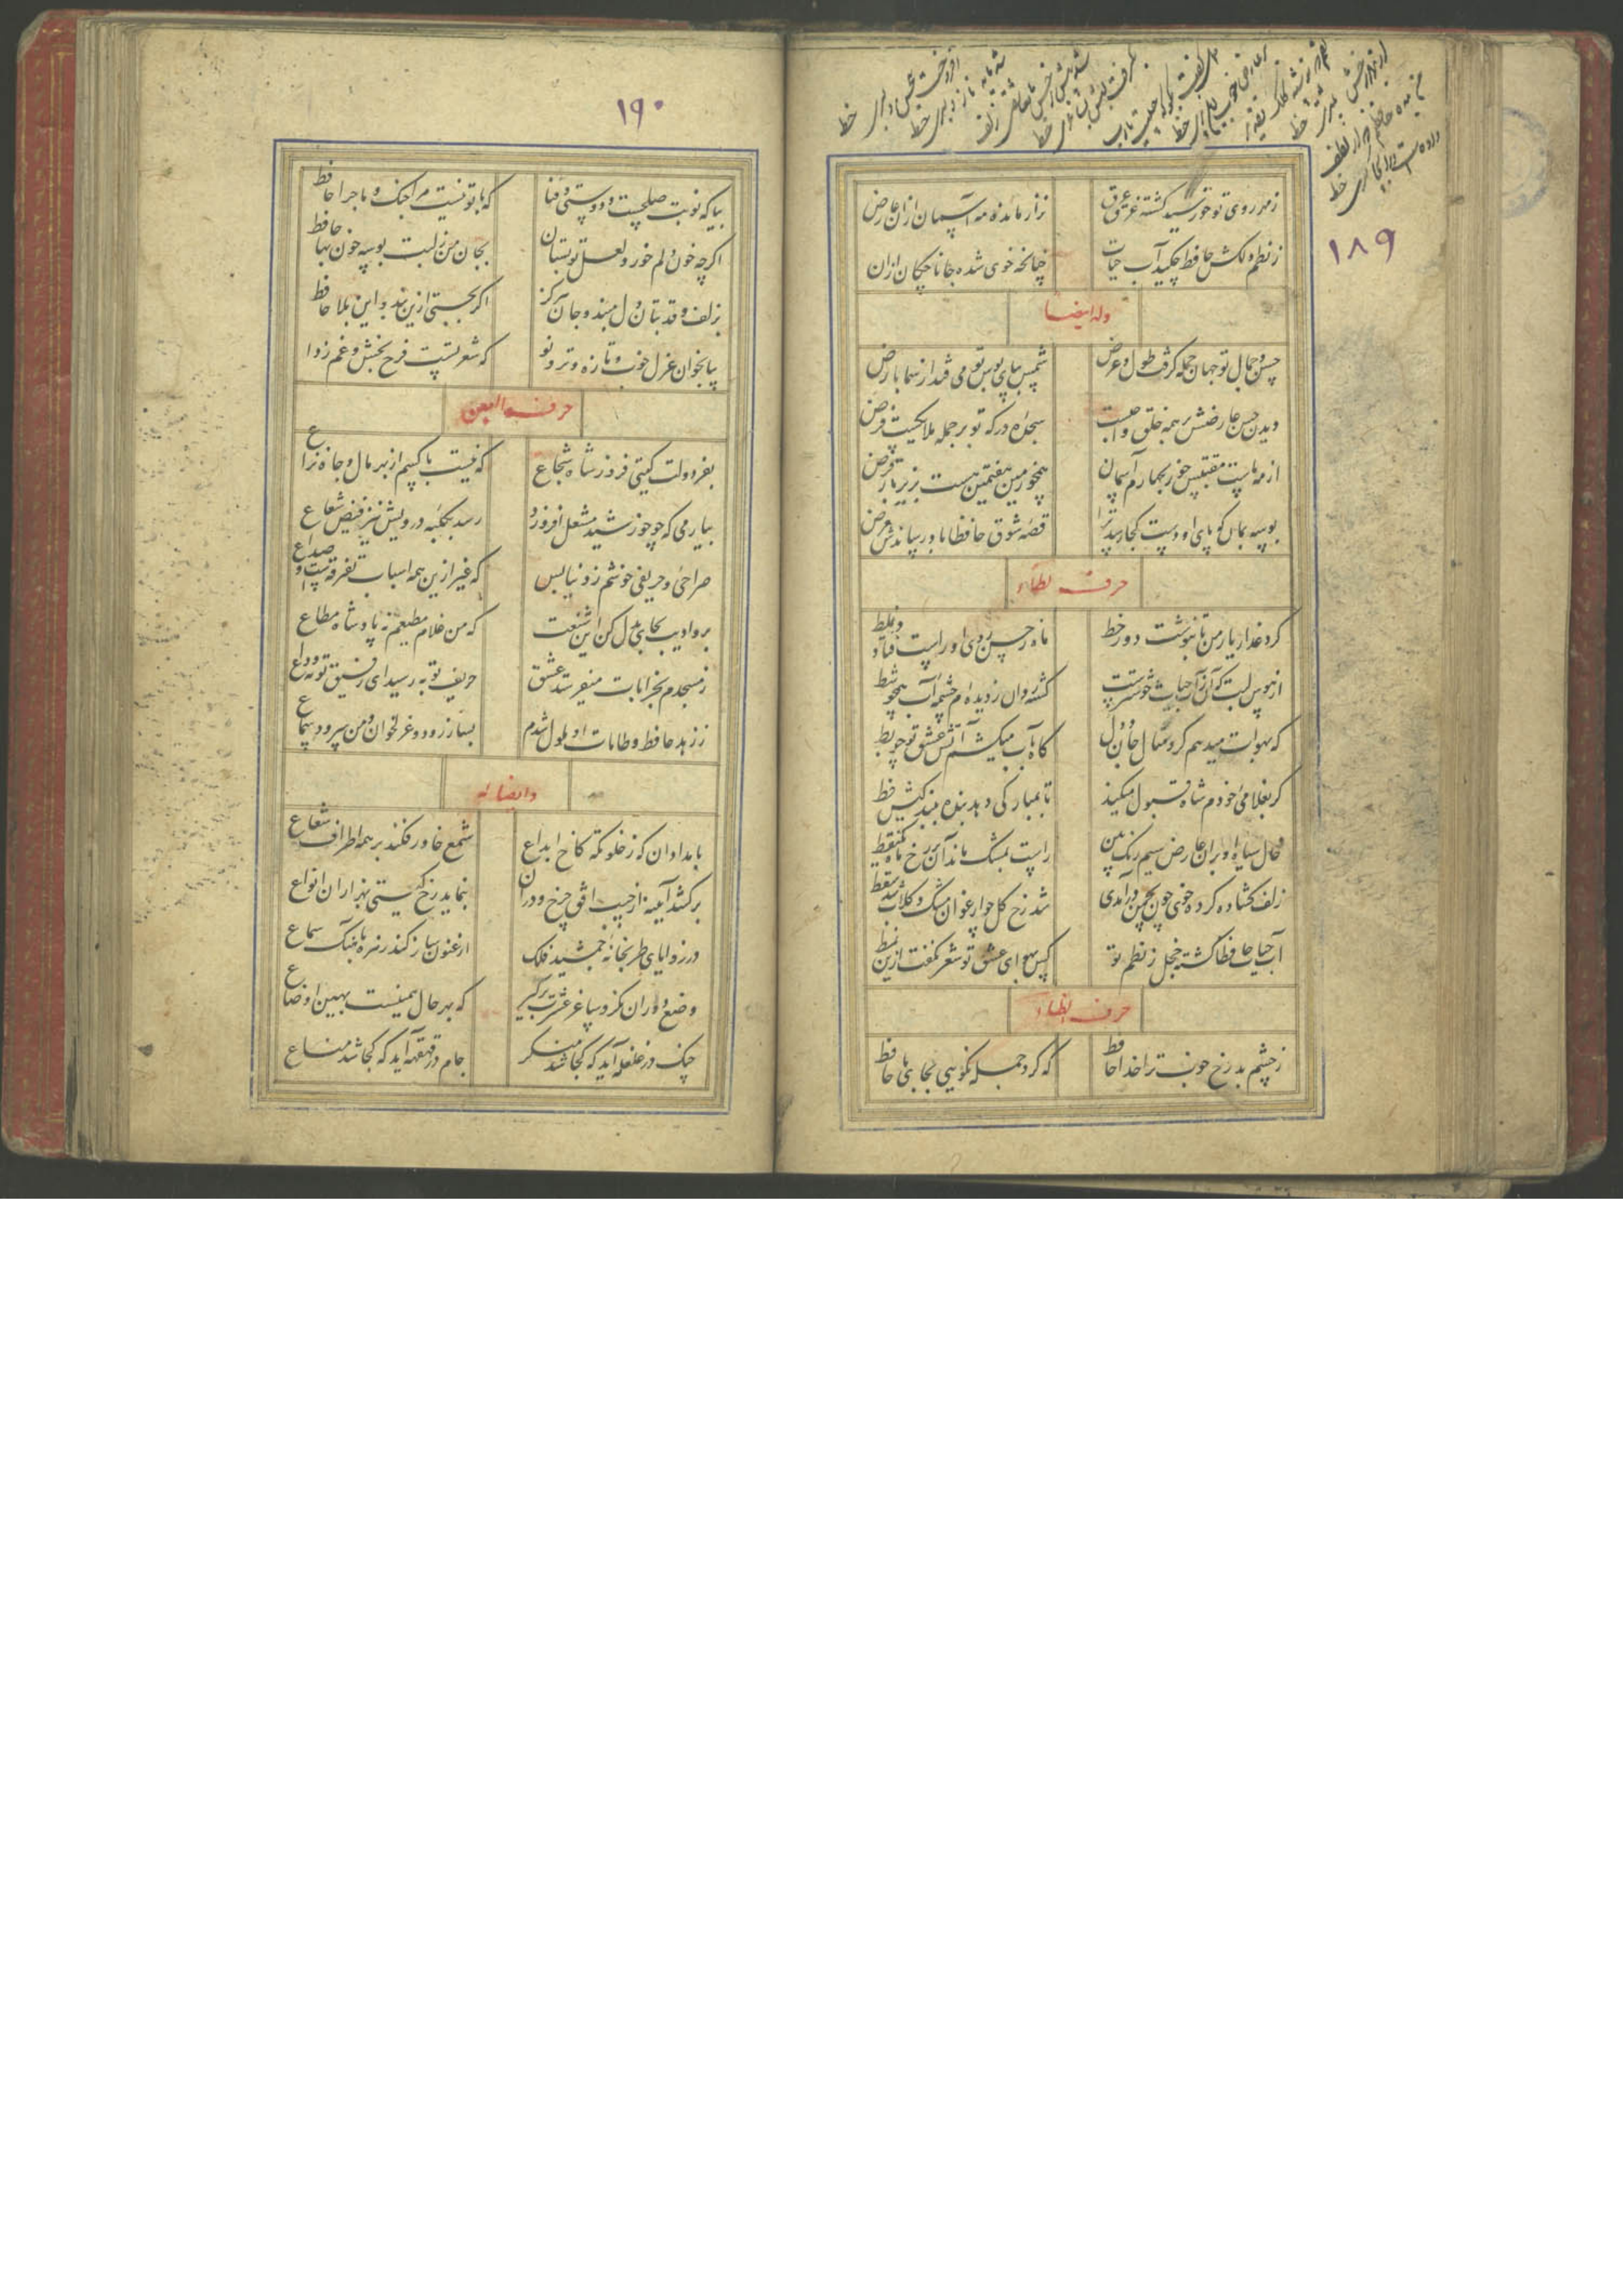 ۱۸۹
زمهر روی تو خورشید کشته غرق عرق
نزار مانده مه آسمان ازان عارض
ز نظم دلکش حافظ چکید آب حیات
چنانکه خوی شده جانا چکان ازان
وله ایضا
حسن و جمال تو جهان جمله کرفت طول و عرض
شمس بپای بوس تو می فتد از سما بارض
دیدن حسن عارضش بر همه خلق واجبست
سجده درکه تو بر جمله ملایکست فرض
از مه تست مقتبس خور بچهارم آسمان
همچو زمین هفتمین هست بزیر بار قرض
بوسه بخاک پای او دست کجا رسد ترا
قصه شوق حافظا باد رساندش بعرض
حرف الطاء
کرد عذار یار من تا بنوشت دور خط
ماه ز حسن روی او راست فتاد در غلط
از هوس لبت که آن ز آب حیات خوشترست
کشته روان ز دیده ام چشمه آب همچو شط
که بهوات میدهم کرد مثال جان و دل
کاه بآب میکشم آتش عشق تو چو بط
کر بغلامی خودم شاه قبول میکند
تا بمبارکی دهد بنده ببندکیش خط
خال سیاه او بران عارض سیم رنک بین
راست بمشک ماند آن بر رخ ماه منقط
زلف کشاده کرده خوی چون بچمن درآمدی
شد رخ کل چو ارغوان مشک و کلاب شد سقط
آب حیات حافظا کشته خجل ز نظم تو
کس بهوای عشق تو شعر نکفت ازین نمط
حرف الظاء
ز چشم بد رخ خوب ترا خدا حافظ
که کرد جمله نکویی بجای ما حافظ
۱۹۰
بیا که نوبت صلحست و دوستی و وفا
که با تو نیست مرا جنک و ماجرا حافظ
اکرچه خون دلم خورد لعل تو بستان
بجان من ز لبت بوسه خون بها حافظ
بزلف و قد بتان دل مبند و جان آن کز
اکر بجستی ازین بند و این بلا حافظ
بیا بخوان غزل خوب و تازه و تر و نو
که شعر تست فرح بخش و غم زدا
حرف العین
بفر دولت کیتی فروز شاه شجاع
که نیست با کسم از بهر مال و جاه نزاع
بیار می که چو خورشید مشعل افروزد
رسد بکلبه درویش نیز فیض شعاع
صراحی و حریفی خوشم ز دنیا بس
که غیر ازین همه اسباب تفرقه ست و صداع
برو ادیب بجای بدل کن این شفقت
که من غلام مطیعم نه پادشاه مطاع
ز مسجدم بخرابات میفرستد عشق
حریف توبه رسید ای رفیق توبه وداع
ز زهد حافظ و طامات او ملول شدم
بساز رود و غزل خوان و من سرود سماع
و ایضا له
بامدادان که ز خلوتکه کاخ ابداع
شمع خاور فکند بر همه اطراف شعاع
برکشد آینه از جیب افق چرخ و دران
بنماید رخ کیتی بهزاران انواع
در زوایای طربخانه جمشید فلک
ارغنون ساز کند زهره بآهنک سماع
وضع دوران بنکر و ساغر عشرت برکیر
که بهر حال همینست بهین اوضاع
چنک در غلغله آید که کجا شد منکر
جام در قهقهه آید که کجا شد مناع